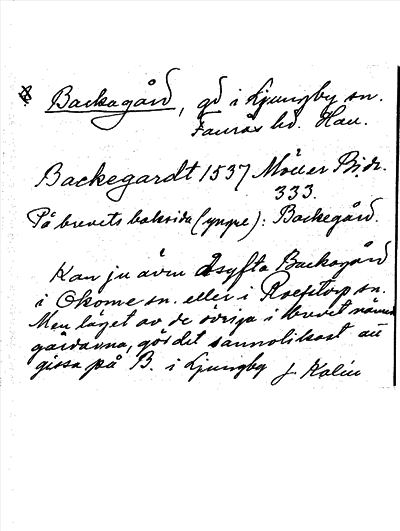 Backagård, gd i Ljungby sn.
Faurås hd. Hall.
Backegardt 1537 Möller Bidr.
333.
På brevets baksida (yngre): Backegård.
Kan ju även åsyfta Backagård
i Okome sn. eller i Roestorp sn.
Men läget av de övriga i brevet nämnda
gårdarna, gör det sannolikast att
gissa på B. i Ljungby J. Kalén